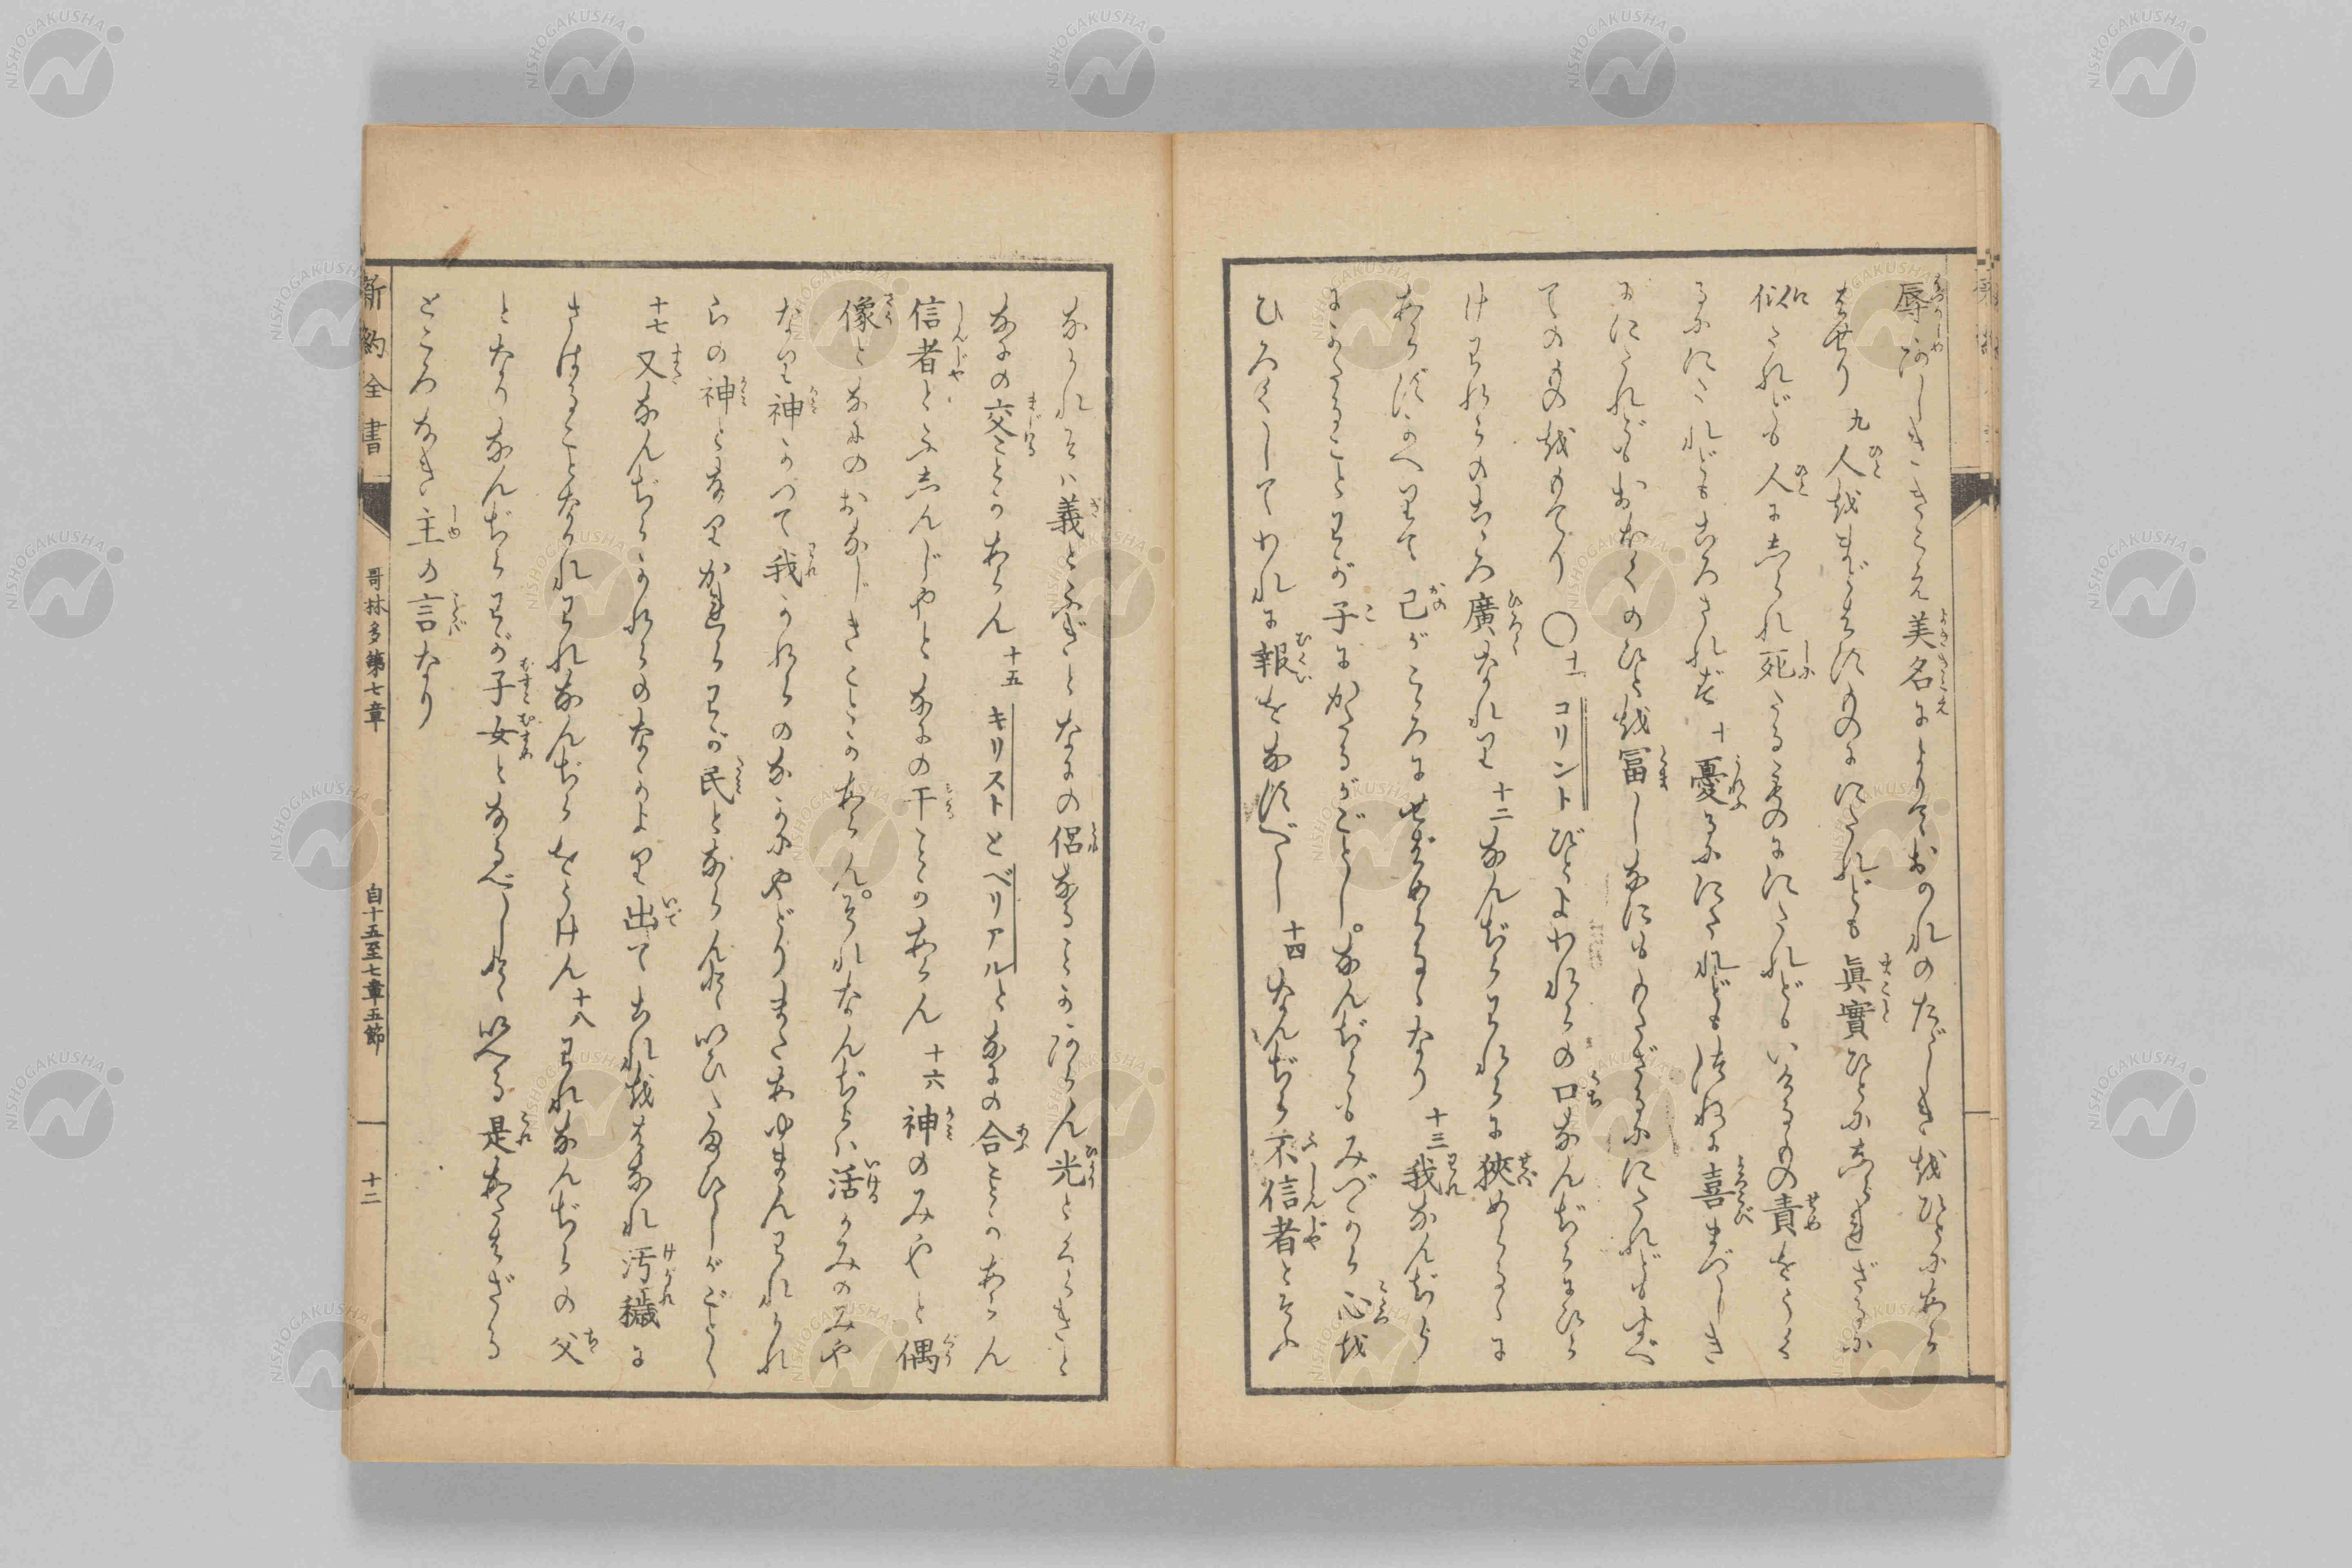 辱 あしききこえ美名によりておのれのただしきをひとにあら
はせり 九 人をまどはすものににたれども眞實ひとにしられざるに
似たれども人にしられ死たるものににたれどもいけるもの責をうく
るににたれどもころされず 十 憂るににたれどもつねに喜まづしき
ににたれどもおほくのひとを富しなにももたざるににたれどもすべ
てのものをもてり 〇 十一 コリントびとよわれらの口なんぢらにひら
けわれらのこころ廣なれり 十二 なんぢらわれらに狹めらるるに
あらずかへりて己がこころにせばめらるるなり 十三 我なんぢら
にかたることわが子にかたるがごとし。なんぢらもみづから心を
ひろくしてわれに報をなすべし 十四 なんぢら不信者とそふ
なかれそは義とふぎとなにの侶なることかあらん光とくらきと
なにの交ことかあらん 十五 キリストとベリアルとなにの合ことかあらん
信者とふしんじやとなにの干ことかあらん 十六 神のみやと偶
像となにのおなじきことかあらん。それなんぢらは活かみのみや
なり神かつて我かれらのなかにやどりまたあゆまんわれかれ
らの神となりかれらわが民とならんといひたまひしがごとく
十七 又なんぢらかれらのなかより出てこれをはなれ汚穢に
さはることなかれわれなんぢらをうけん 十八 われなんぢらの父
となりなんぢらわが子女となるべしといへる是あたはざる
ところなき主の言なり
新約全書
哥林多第七章
自十五至七章五節
十二